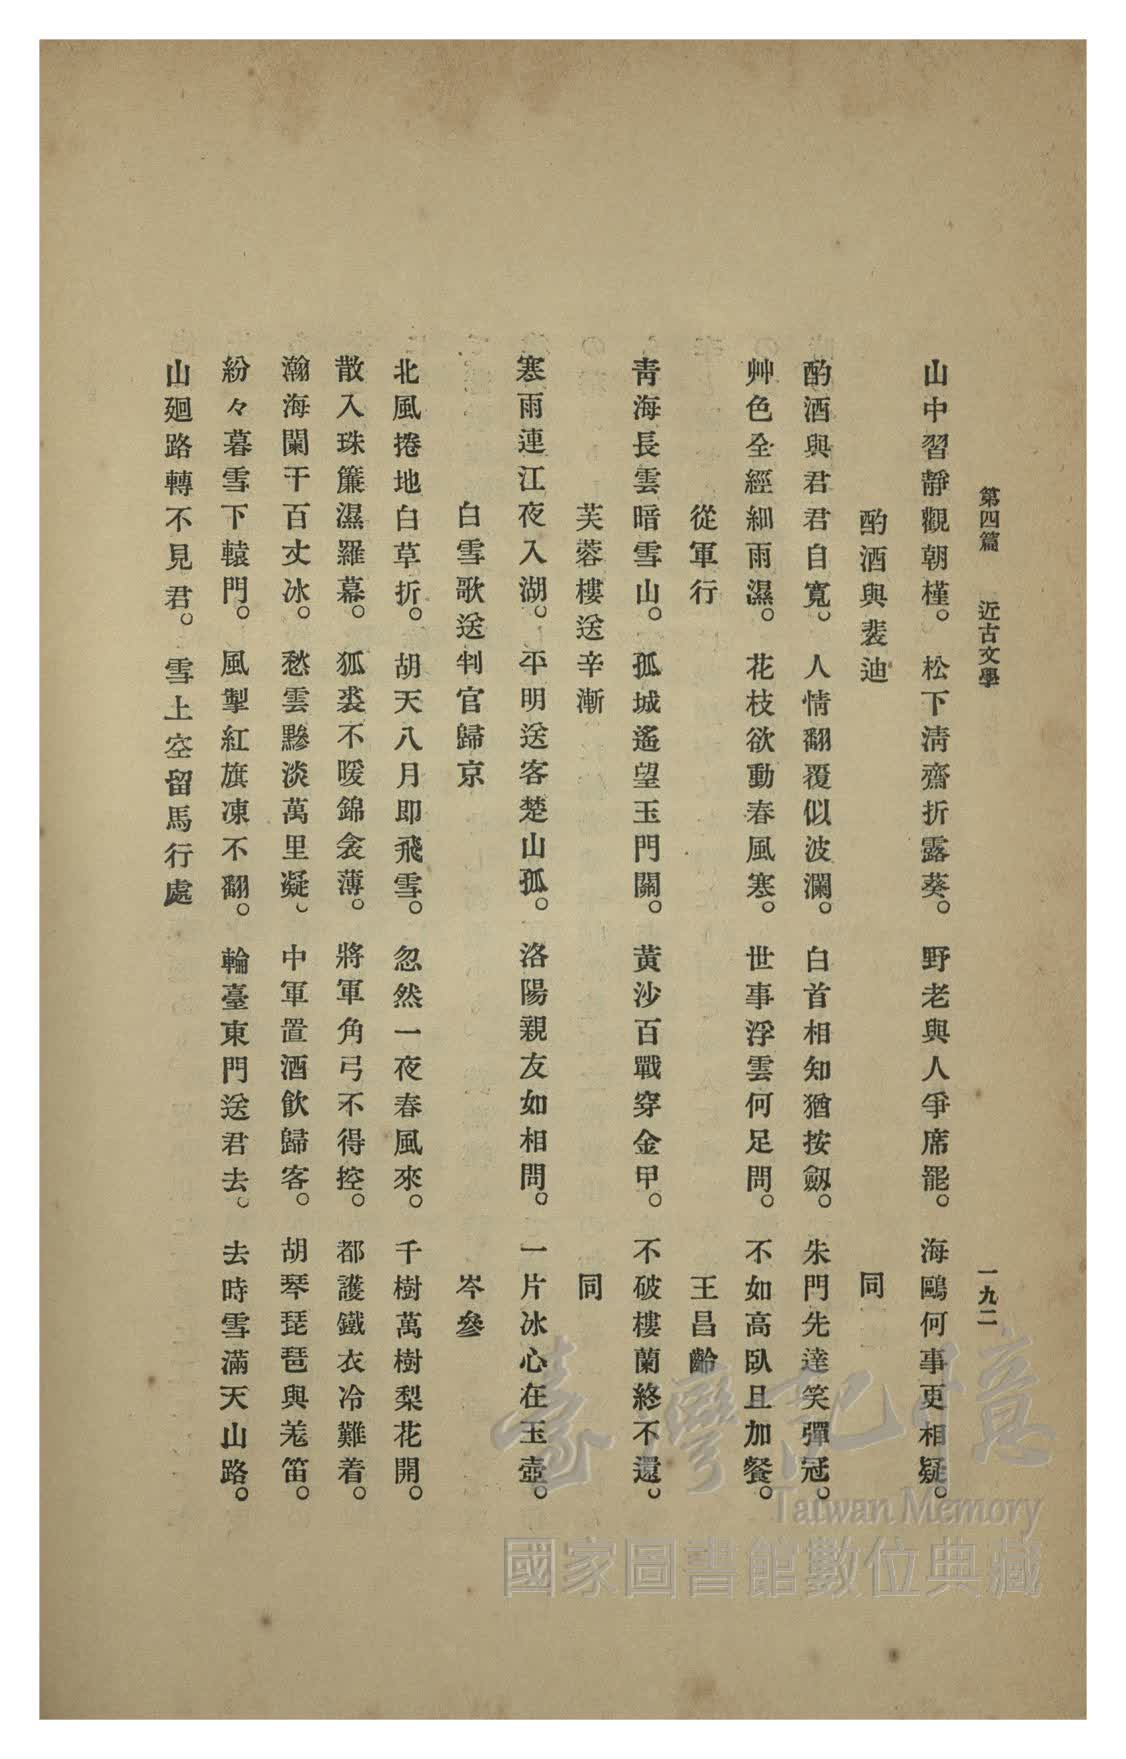 第四篇　近古文學　一九二
山中習靜觀朝槿。松下淸齋折露葵。野老與人爭席罷。海鷗何事更相疑。
酌酒與裴迪　同
酌酒與君君自寬。人情翻覆似波瀾。白首相知猶按劔。朱門先達笑彈冠。
艸色全經細雨濕。花枝欲動春風寒。世事浮雲何足問。不如高臥且加餐。
從軍行　王昌齡
靑海長雲暗雪山。孤城遙望玉門關。黃沙百戰穿金甲。不破樓蘭終不還。
芙蓉樓送辛漸　同
寒雨連江夜入湖。平明送客楚山孤。洛陽親友如相問。一片冰心在玉壺。
白雪歌送判官歸京　岑參
北風捲地白草折。胡天八月卽飛雪。忽然一夜春風來。千樹萬樹梨花開。
散入珠簾濕羅幕。狐裘不暖錦衾薄。將軍角弓不得控。都護鐵衣冷難着。
瀚海闌干百丈冰。愁雲黲淡萬里凝。中軍置酒飮歸客。胡琴琵琶與羌笛。
紛々暮雪下轅門。風掣紅旗凍不翻。輪臺東門送君去。去時雪滿天山路。
山廻路轉不見君。雪上空留馬行處
臺灣記憶
Taiwan Memory
國家圖書館數位典藏